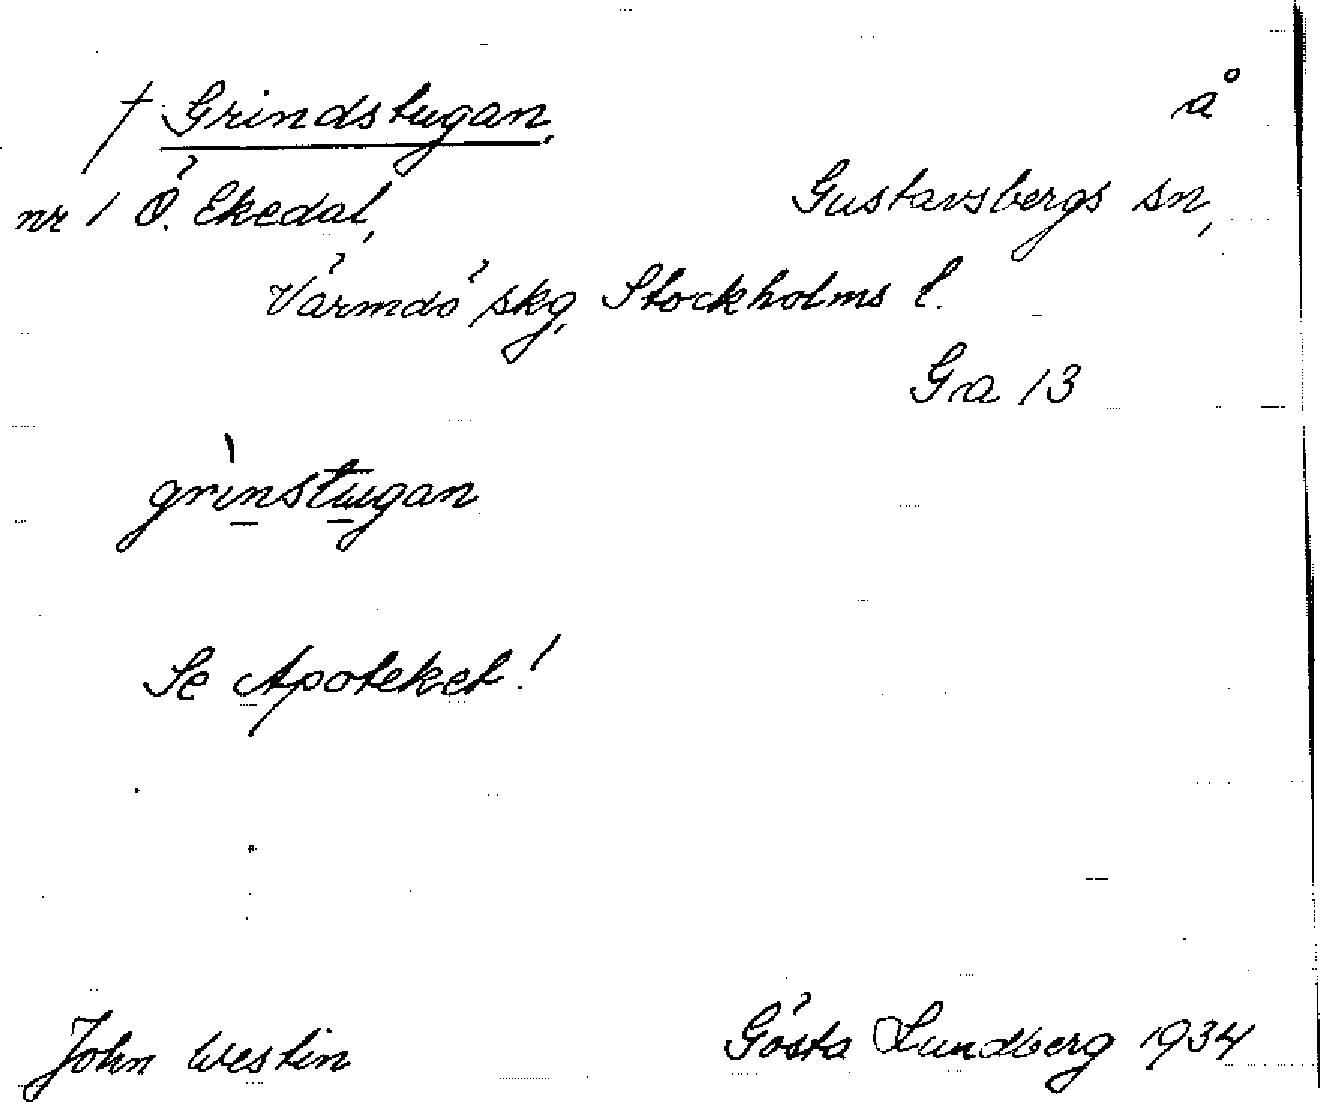 † Grindstugan, å
nr 1 Ö. Ekedal, Gustavsbergs sn,
Värmdö skg, Stockholms l.
Ga 13
grìnstugan
Se Apoteket!
John Westin Gösta Lundberg 1934